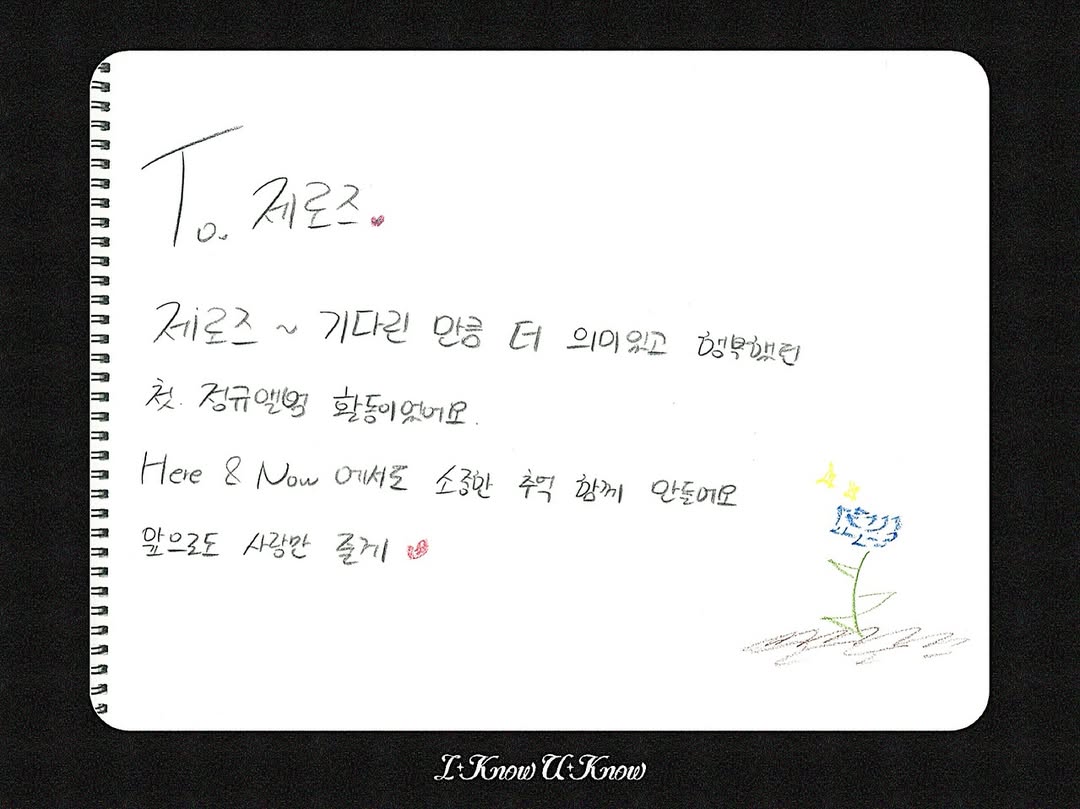 To. 제로즈
제로즈 ~ 기다린 만큼 더 의미있고 행복했던
첫 정규앨범 활동이었어요.
Here & Now 에서도 소중한 추억 함께 만들어요
앞으로도 사랑만 줄게
I Know U Know